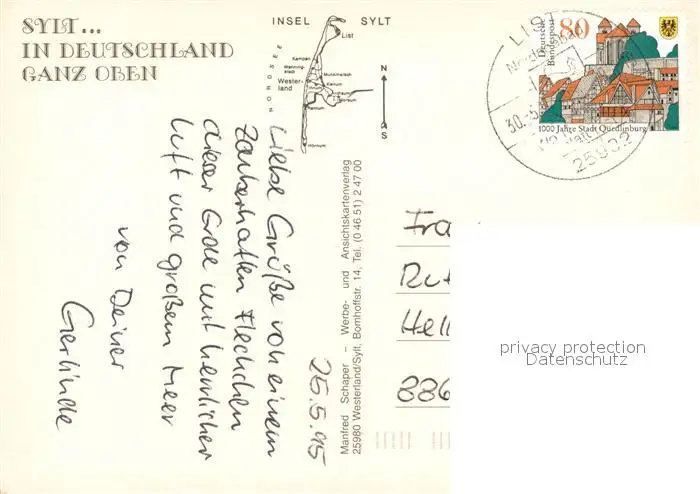 SYLT...
IN DEUTSCHLAND
GANZ OBEN
INSEL SYLT
List
Kampen
Wenning-
stedt
Munkmarsch
Wester-
land
Keitum
Rantum
Hörnum
NORDSEE
N
S
Deutsche
Bundespost
80
1000 Jahre Stadt Quedlinburg
LIST
30.-5.
25992
25.5.95
Liebe Grüße von einem
zauberhaften Fleckchen
dieser Erde mit herrlicher
Luft und großem Meer
von Deiner
Gerlinde
Manfred Schaper – Werbe- und Ansichtskartenverlag
25980 Westerland/Sylt, Bomhoffstr. 14, Tel. (0 46 51) 2 47 00
Fra
Rut
Hell
886
privacy protection
Datenschutz